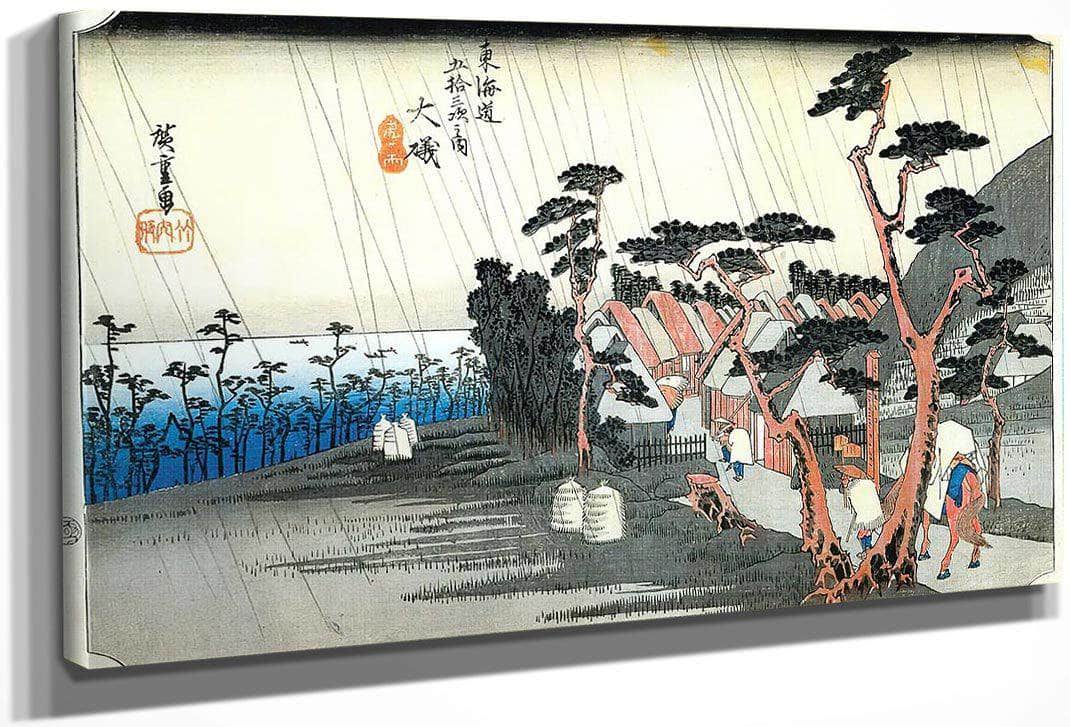 東海道
五拾三次之内
大磯
虎ヶ雨
廣重画
竹内